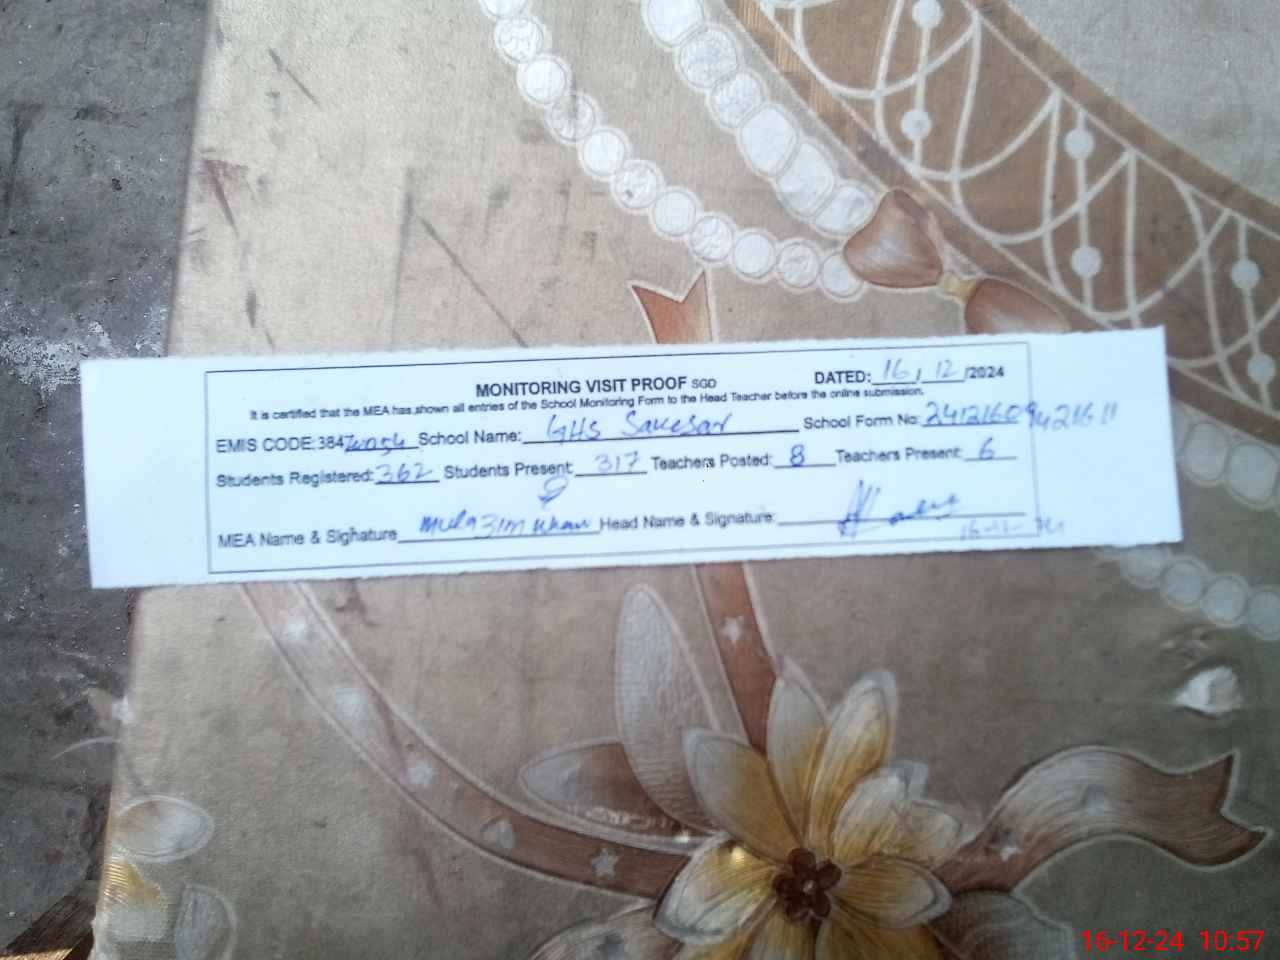 MONITORING VISIT PROOF SGD DATED: 16, 12 /2024
It is certified that the MEA has shown all entries of the School Monitoring Form to the Head Teacher before the online submission.
EMIS CODE:384 School Name: GHS Sakesar School Form No: 24121609421611
Students Registered: 362 Students Present: 317 Teachers Posted: 8 Teachers Present: 6
MEA Name & Signature Mulazim Khan Head Name & Signature:
16-12-24 10:57